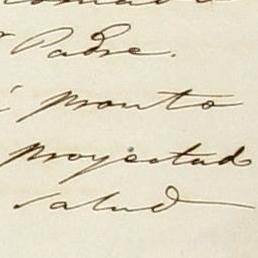 Padre.
pronto
proyectado
salud